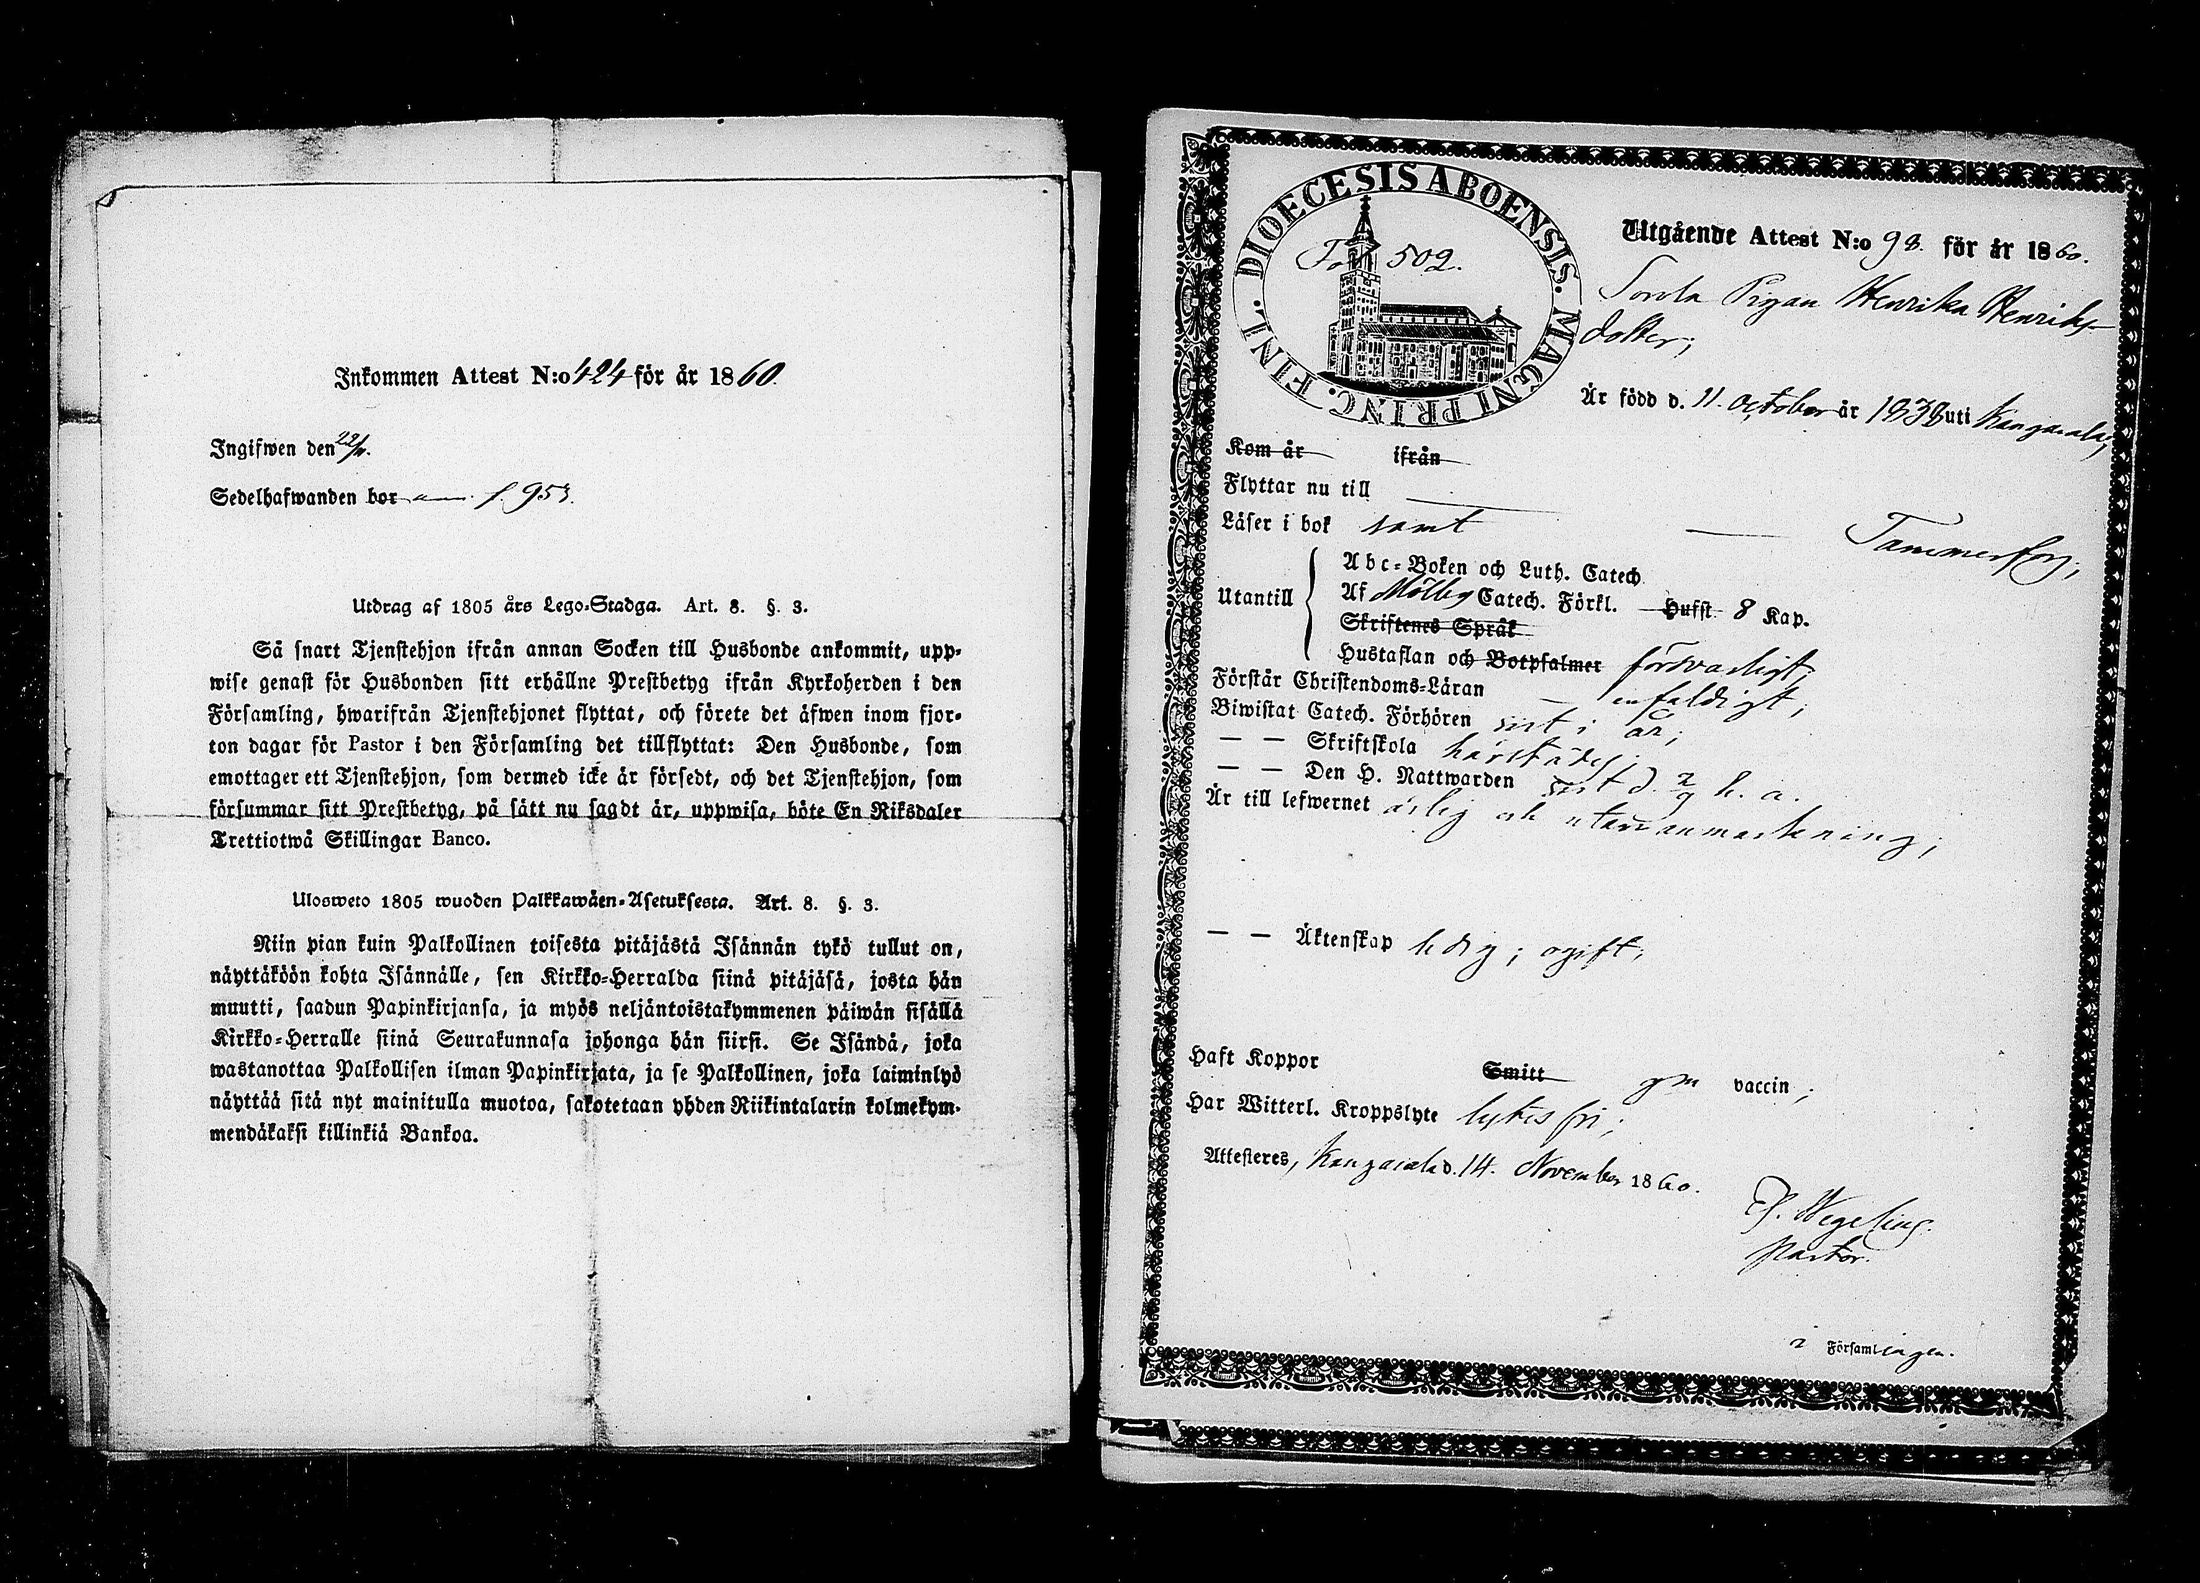 Inkommen Attest N:o 424 för år 1860.
Ingifwen den 22/11.
Sedelhafwanden bor ann. f. 953.
Utdrag af 1805 års Lego-Stadga. Art. 8. §. 3.
Så snart Tjenstehjon ifrån annan Socken till Husbonde ankommit, upp-
wise genast för Husbonden sitt erhållne Prestbetyg ifrån Kyrkoherden i den
Församling, hwarifrån Tjenstehjonet flyttat, och förete det äfwen inom fjor-
ton dagar för Pastor i den Församling det tillflyttat: Den Husbonde, som
emottager ett Tjenstehjon, som dermed icke är försedt, och det Tjenstehjon, som
försummar sitt Prestbetyg, på sätt nu sagdt är, uppwisa, böte En Riksdaler
Trettiotwå Skillingar Banco.
Ulosweto 1805 wuoden Palkkawäen-Asetuksesta. Art. 8. §. 3.
Niin pian kuin Palkollinen toisesta pitäjästä Isännän tykö tullut on,
näyttäköön kohta Isännälle, sen Kirkko-Herralda siinä pitäjäsä, josta hän
muutti, saadun Papinkirjansa, ja myös neljäntoistakymmenen päiwän sisällä
Kirkko-Herralle siinä Seurakunnasa johonga hän siirsi. Se Isändä, joka
wastanottaa Palkollisen ilman Papinkirjata, ja se Palkollinen, joka laiminlyö
näyttää sitä nyt mainitulla muotoa, sakotetaan yhden Riikintalarin kolmekym-
mendäkaksi killinkiä Bankoa.
DIOECESIS ABOENSIS. MAGNI PRINC. FINL.
Fol 502.
Utgående Attest N:o 98. för år 1860.
Pigan Henrika Henriks
dotter;
Är född d. 11. october år 1838 uti Kangasala;
Kom år ifrån
Flyttar nu till Tammerfors;
Läser i bok samt
Utantill Abc-Boken och Luth. Catech
Af Möllers Catech. Förkl. Hufst. 8 Kap.
Skriftenes Språk
Hustaflan och Botpsalmer försvarligt;
Förstår Christendoms-Läran enfaldigt;
Biwistat Catech. Förhören sist i år;
— — Skriftskola härstädes;
— — Den H. Nattwarden sist d. 2/9 h. a.
Är till lefwernet ärlig och utan anmärkning;
— — Äktenskap ledig; ogift;
Haft Koppor Smitt gm vaccin;
Har Witterl. Kroppslyte lytes fri;
Attesteres, Kangasala d. 14. November 1860.
Pastor.
i Församlingen.